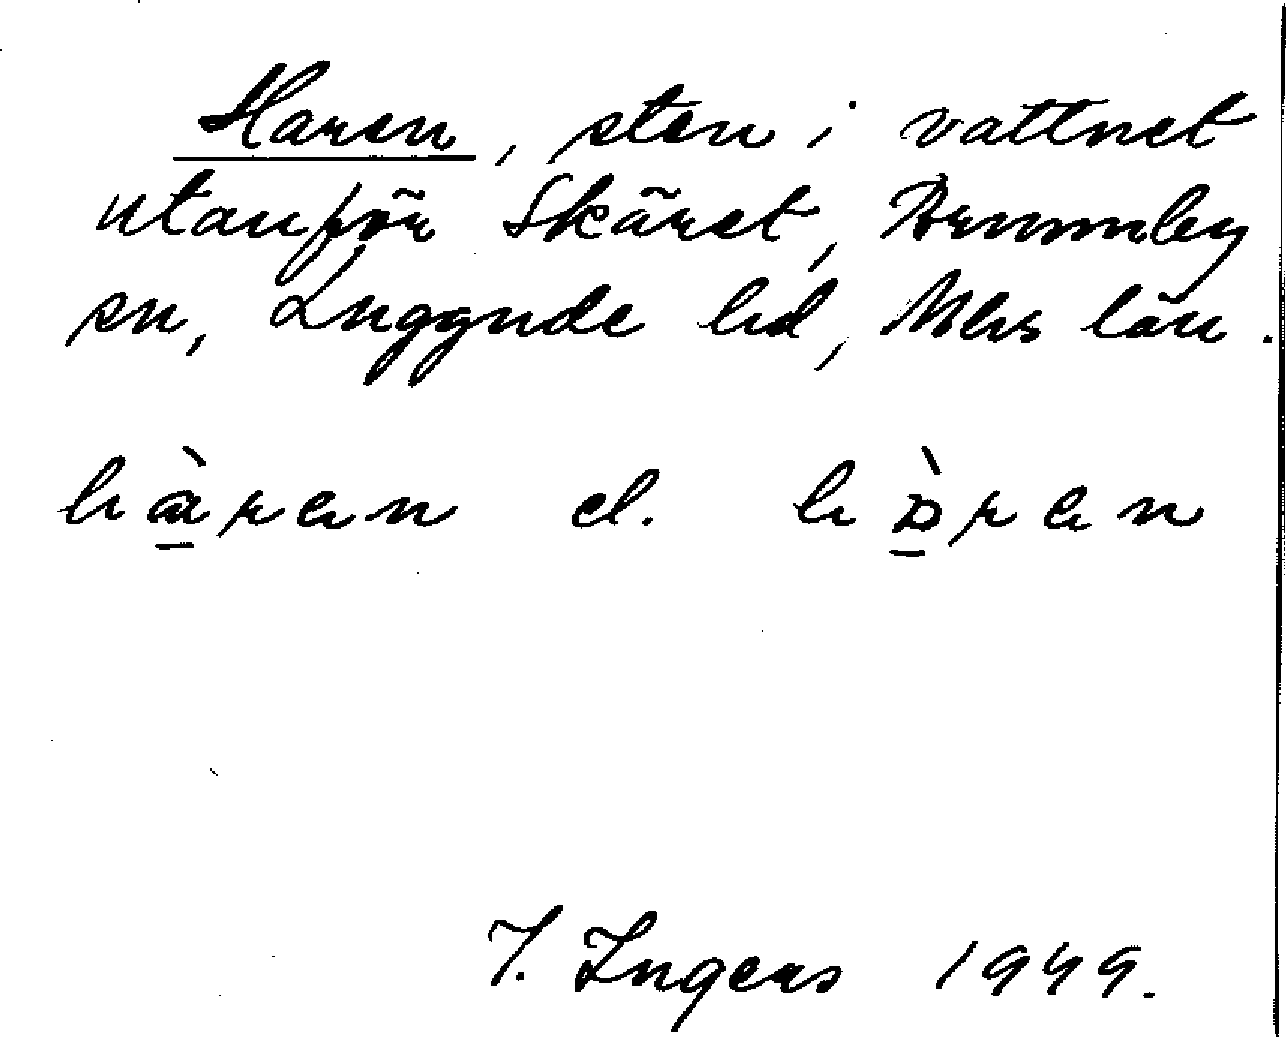 Haren, sten i vattnet
utanför Skäret, Brunnby
sn, Luggude hd, Mlhs län.
hàren el. hɒ̀ren
I. Ingers 1949.